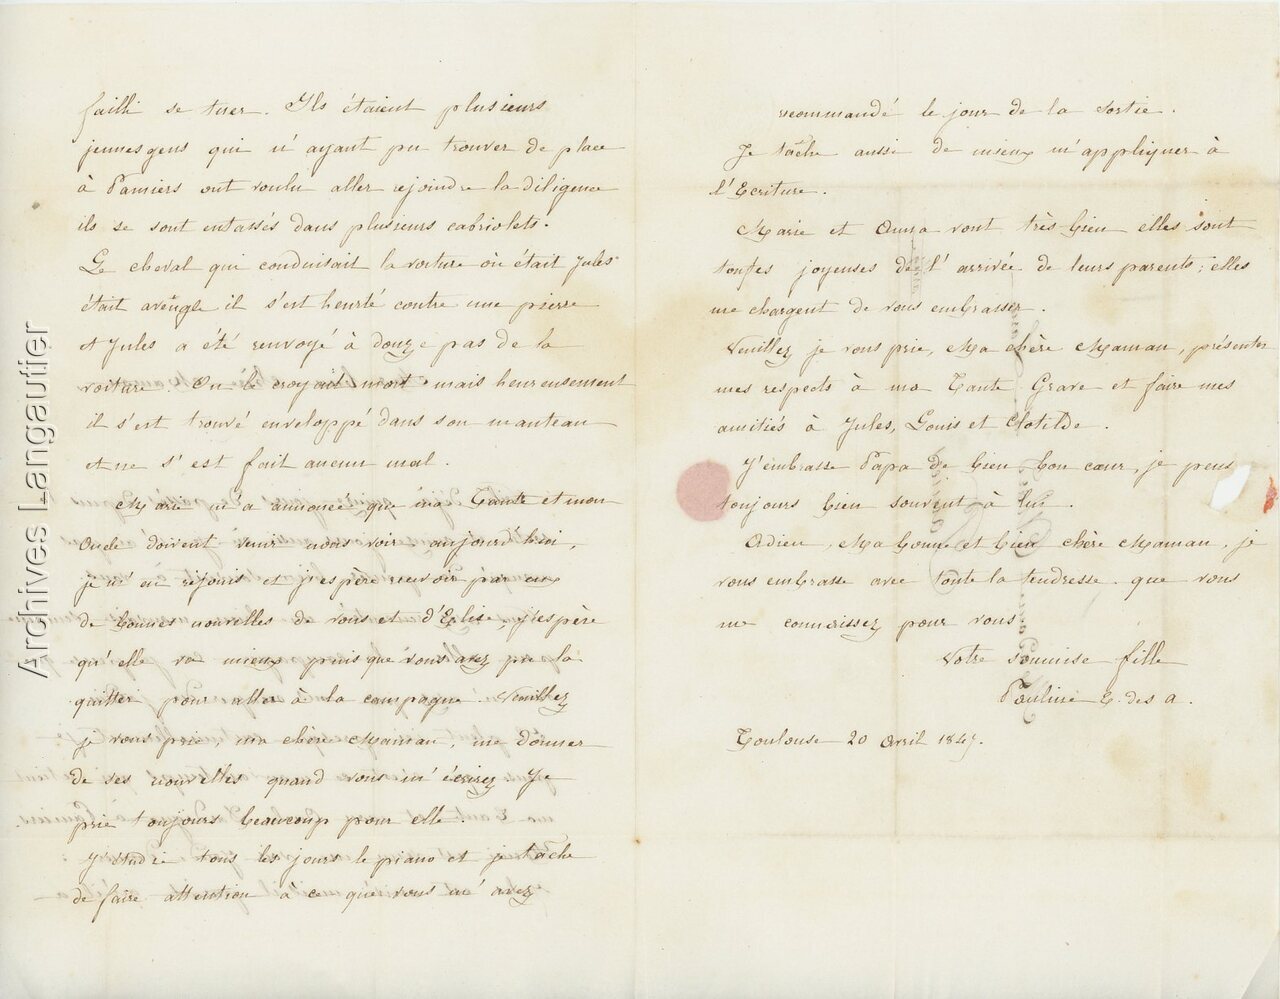 failli se tuer. Ils étaient plusieurs
jeunes gens qui n'ayant pu trouver de place
à Pamiers ont voulu aller rejoindre la diligence
ils se sont entassés dans plusieurs cabriolets.
Le cheval qui conduisait la voiture où était Jules
était aveugle il s'est heurté contre une pierre
et Jules a été renvoyé à douze pas de la
voiture. On le croyait mort mais heureusement
il s'est trouvé enveloppé dans son manteau
et ne s'est fait aucun mal.
Marie m'a annoncé que ma Tante et mon
Oncle doivent venir nous voir aujourd'hui,
je m'en réjouis et j'espère recevoir par eux
de bonnes nouvelles de vous et d'Elise, j'espère
qu'elle va mieux puisque vous avez pu la
quitter pour aller à la campagne. Veuillez
je vous prie, ma chère Maman, me donner
de ses nouvelles quand vous m'écrirez. Je
prie toujours beaucoup pour elle.
J'étudie tous les jours le piano et je tâche
de faire attention à ce que vous m'avez
recommandé le jour de la sortie.
Je tâche aussi de mieux m'appliquer à
l'Ecriture.
Marie et Anna vont très bien elles sont
toutes joyeuses de l'arrivée de leurs parents; elles
me chargent de vous embrasser.
Veuillez je vous prie, Ma chère Maman, présenter
mes respects à ma Tante Grave et faire mes
amitiés à Jules, Louis et Clotilde.
J'embrasse Papa de bien bon cœur, je pense
toujours bien souvent à lui.
Adieu, Ma bonne et bien chère Maman, je
vous embrasse avec toute la tendresse que vous
me connaissez pour vous
Votre soumise fille
Pauline E. des a.
Toulouse 20 Avril 1845.
Archives Langautier